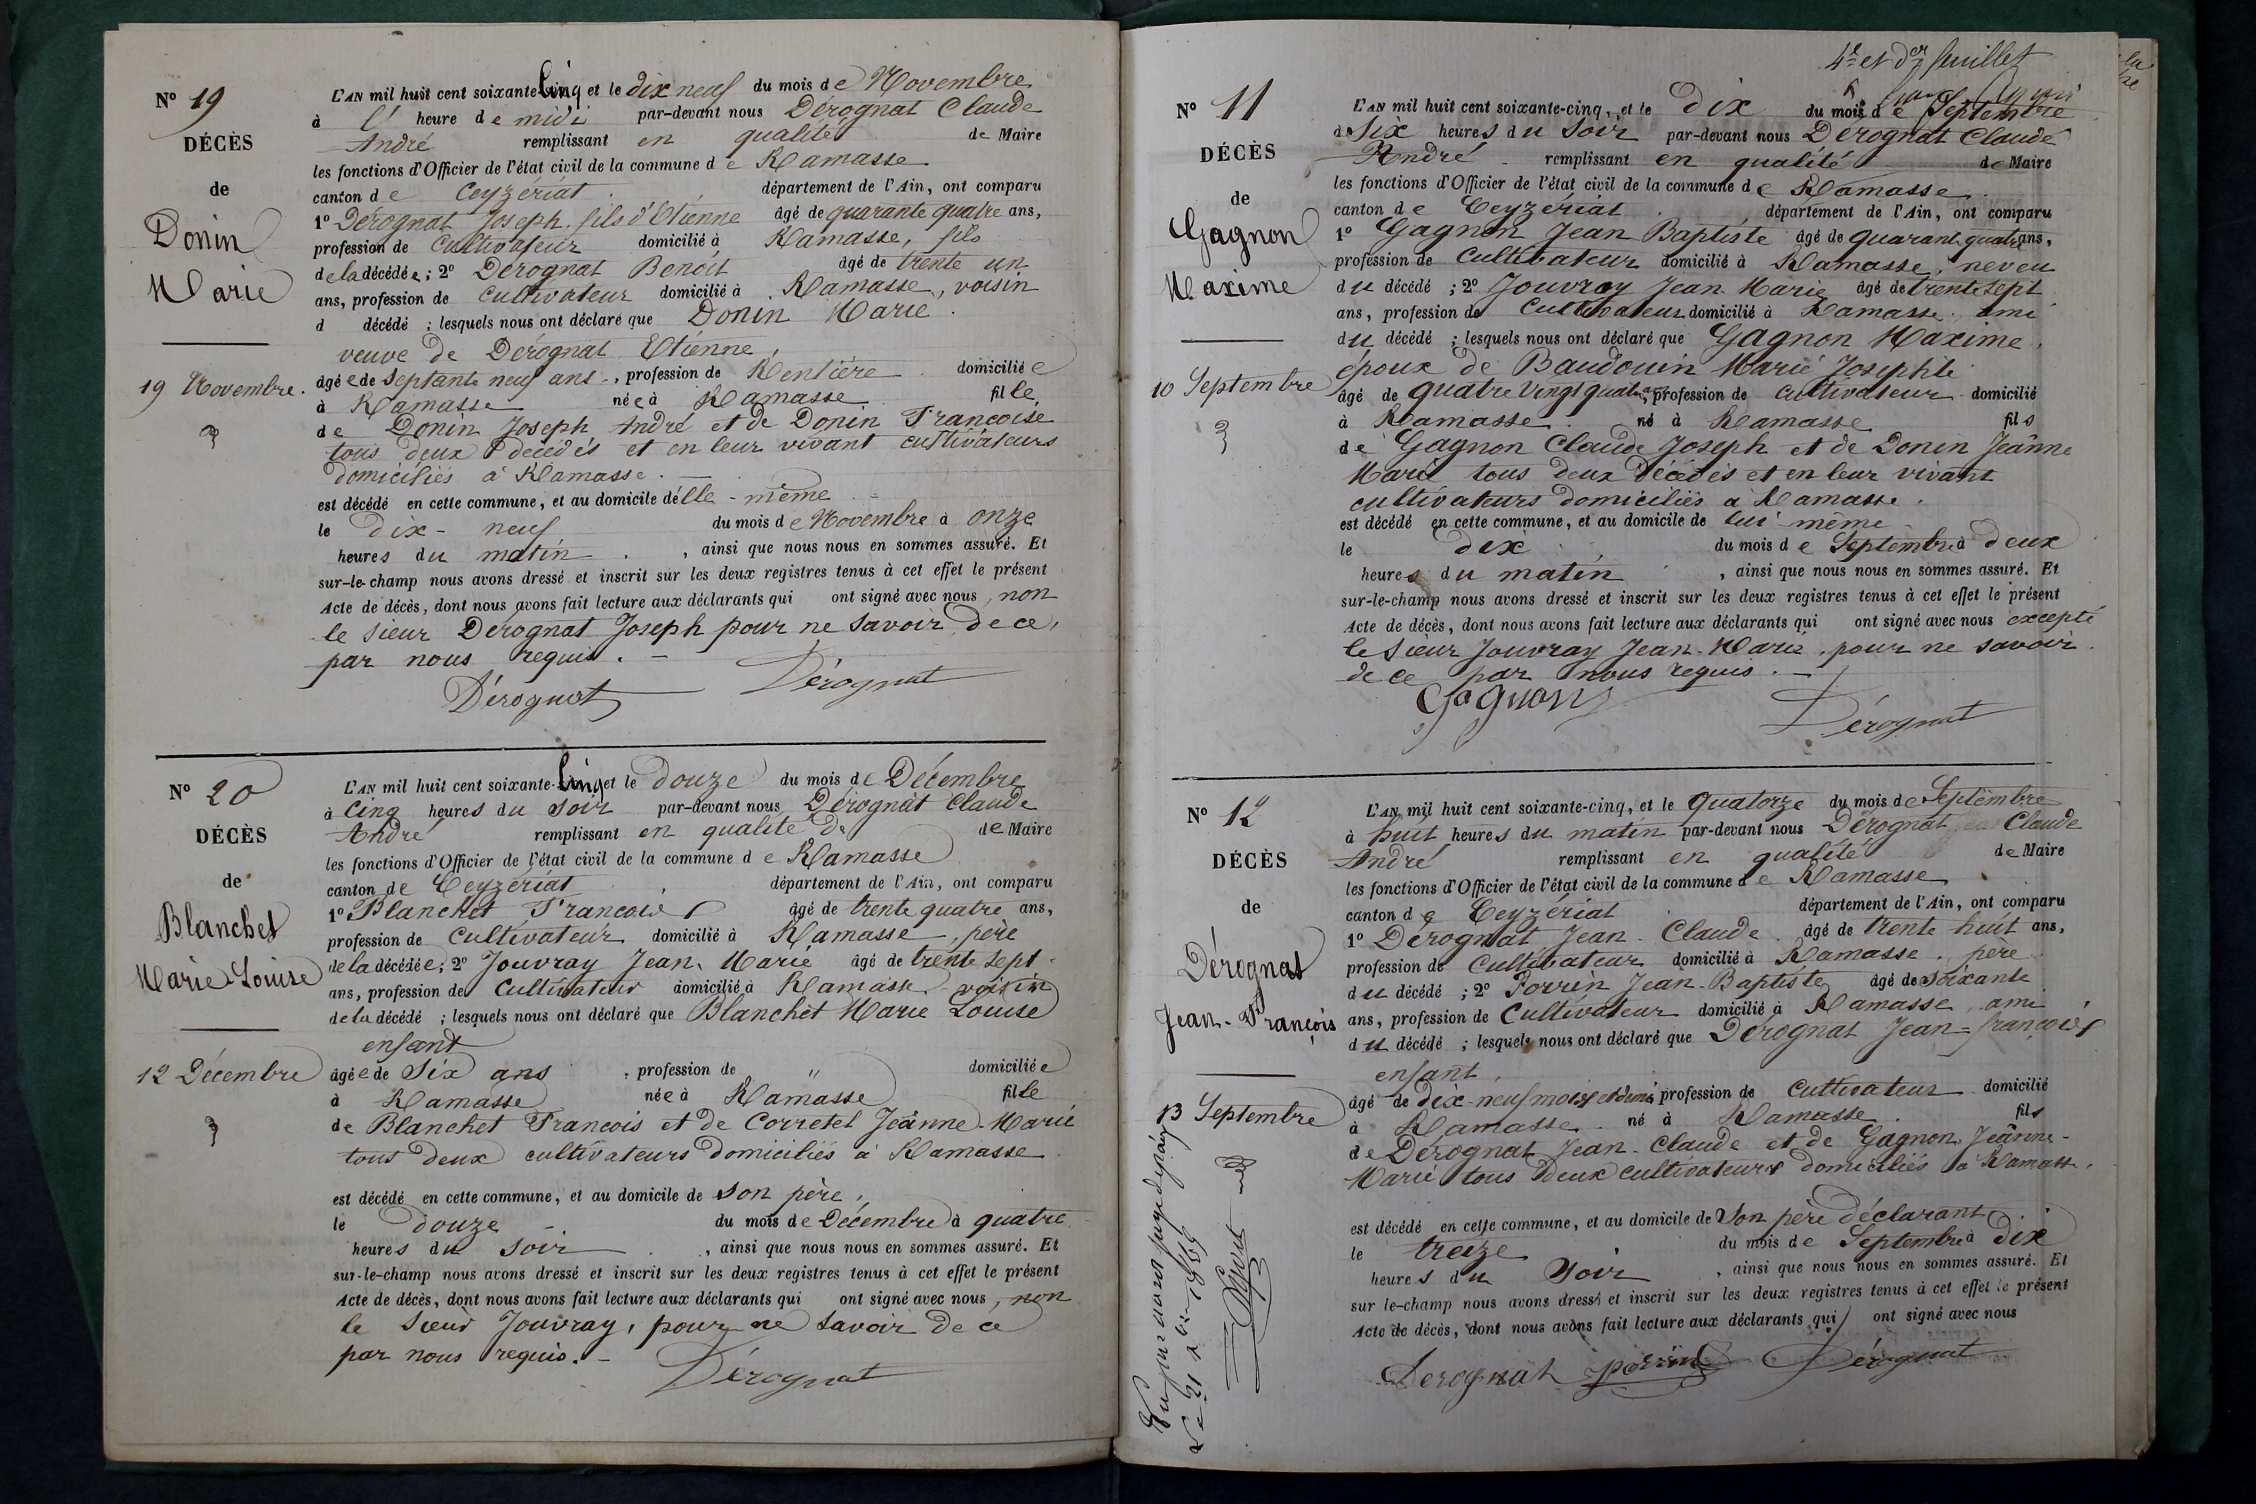 N° 19
DÉCÈS
de
Donin
Marie
19 Novembre.
L'AN mil huit cent soixante Cinq et le dix neuf du mois de Novembre
à l' heure de midi par-devant nous Dérognat Claude
André remplissant en qualité de Maire
les fonctions d'Officier de l'état civil de la commune de Ramasse
canton de Ceyzériat. département de l'Ain, ont comparu
1° Dérognat Joseph fils d'Etienne âgé de quarante quatre ans,
profession de Cultivateur domicilié à Ramasse, fils
de la décédée; 2° Dérognat Benoit âgé de trente un
ans, profession de cultivateur domicilié à Ramasse, voisin
d décédé ; lesquels nous ont déclaré que Donin Marie.
veuve de Dérognat Etienne,
âgée de Septante neuf ans, profession de Rentière domiciliée
à Ramasse née à Ramasse fille,
de Donin Joseph André et de Donin Françoise
tous deux décédés et en leur vivant cultivateurs
domiciliés à Ramasse.
est décédé en cette commune, et au domicile d'elle-même
le dix-neuf du mois de Novembre à onze
heures du matin, ainsi que nous nous en sommes assuré. Et
sur-le-champ nous avons dressé et inscrit sur les deux registres tenus à cet effet le présent
Acte de décès, dont nous avons fait lecture aux déclarants qui ont signé avec nous, non
le sieur Dérognat Joseph pour ne savoir, de ce,
par nous requis. -
Dérognat Dérognat
N° 20
DÉCÈS
de
Blanchet
Marie-Louise
12 Décembre
L'AN mil huit cent soixante-Cinq et le douze du mois de Décembre
à Cinq heures du soir par-devant nous Dérognat Claude
André remplissant en qualité de de Maire
les fonctions d'Officier de l'état civil de la commune de Ramasse
canton de Ceyzériat, département de l'Ain, ont comparu
1° Blanchet François âgé de trente quatre ans,
profession de Cultivateur domicilié à Ramasse, père
de la décédée; 2° Jouvray Jean-Marie âgé de trente sept
ans, profession de Cultivateur domicilié à Ramasse voisin
de la décédé ; lesquels nous ont déclaré que Blanchet Marie Louise
enfant
âgée de Six ans, profession de " domiciliée
à Ramasse née à Ramasse fille
de Blanchet François et de Corretel Jeanne-Marie
tous deux cultivateurs domiciliés à Ramasse
est décédé en cette commune, et au domicile de son père,
le douze du mois de Décembre à quatre
heures du soir, ainsi que nous nous en sommes assuré. Et
sur-le-champ nous avons dressé et inscrit sur les deux registres tenus à cet effet le présent
Acte de décès, dont nous avons fait lecture aux déclarants qui ont signé avec nous, non
le sieur Jouvray, pour ne savoir de ce
par nous requis. -
Dérognat
4e et der feuillet
N° 11
DÉCÈS
de
Gagnon
Maxime
10 Septembre
L'AN mil huit cent soixante-cinq, et le dix du mois de Septembre
à Six heures du Soir par-devant nous Dérognat Claude
André remplissant en qualité de Maire
les fonctions d'Officier de l'état civil de la commune de Ramasse
canton de Ceyzériat. département de l'Ain, ont comparu
1° Gagnon Jean Baptiste âgé de quarant quatre ans,
profession de Cultivateur domicilié à Ramasse, neveu
du décédé ; 2° Jouvray Jean-Marie âgé de trente sept
ans, profession de Cultivateur domicilié à Ramasse. ami
du décédé ; lesquels nous ont déclaré que Gagnon Maxime,
époux de Baudouin Marie Josephte
âgé de quatre vingt quatre ans, profession de cultivateur domicilié
à Ramasse. né à Ramasse fils
de Gagnon Claude Joseph et de Donin Jeanne
Marie tous deux décédés et en leur vivant
cultivateurs domiciliés à Ramasse.
est décédé en cette commune, et au domicile de lui-même
le dix du mois de Septembre à deux
heures du matin, ainsi que nous nous en sommes assuré. Et
sur-le-champ nous avons dressé et inscrit sur les deux registres tenus à cet effet le présent
Acte de décès, dont nous avons fait lecture aux déclarants qui ont signé avec nous excepté
le sieur Jouvray Jean-Marie, pour ne savoir.
de ce par nous requis. -
Gagnon Dérognat
N° 12
DÉCÈS
de
Dérognat
Jean-François
13 Septembre
L'AN mil huit cent soixante-cinq, et le quatorze du mois de Septembre
à huit heures du matin par-devant nous Dérognat Claude
André remplissant en qualité de Maire
les fonctions d'Officier de l'état civil de la commune de Ramasse
canton de Ceyzériat département de l'Ain, ont comparu
1° Dérognat Jean-Claude âgé de trente huit ans,
profession de Cultivateur domicilié à Ramasse. père
du décédé ; 2° Porrin Jean-Baptiste âgé de soixante
ans, profession de Cultivateur domicilié à Ramasse, ami
du décédé ; lesquels nous ont déclaré que Dérognat Jean-françois
enfant,
âgé de dix-neuf mois et demi profession de cultivateur domicilié
à Ramasse né à Ramasse fils
de Dérognat Jean-Claude et de Gagnon Jeanne-
Marie tous deux cultivateurs domiciliés à Ramasse,
est décédé en cette commune, et au domicile de Son père déclarant
le treize du mois de Septembre à dix
heures du soir, ainsi que nous nous en sommes assuré. Et
sur le-champ nous avons dressé et inscrit sur les deux registres tenus à cet effet le présent
Acte de décès, dont nous avons fait lecture aux déclarants qui ont signé avec nous
Derognat porrin Dérognat
Vu par nous juge